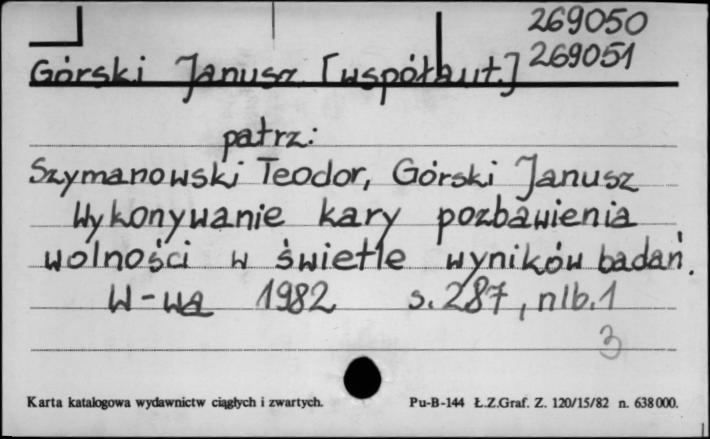 269050
Górski Janusz [współaut.] 269051
patrz:
Szymanowski Teodor, Górski Janusz
Wykonywanie kary pozbawienia
wolności w świetle wyników badań.
W-wa 1982 s. 287, nlb. 1
3
Karta katalogowa wydawnictw ciągłych i zwartych. Pu-B-144 Ł.Z.Graf. Z. 120/15/82 n. 638000.